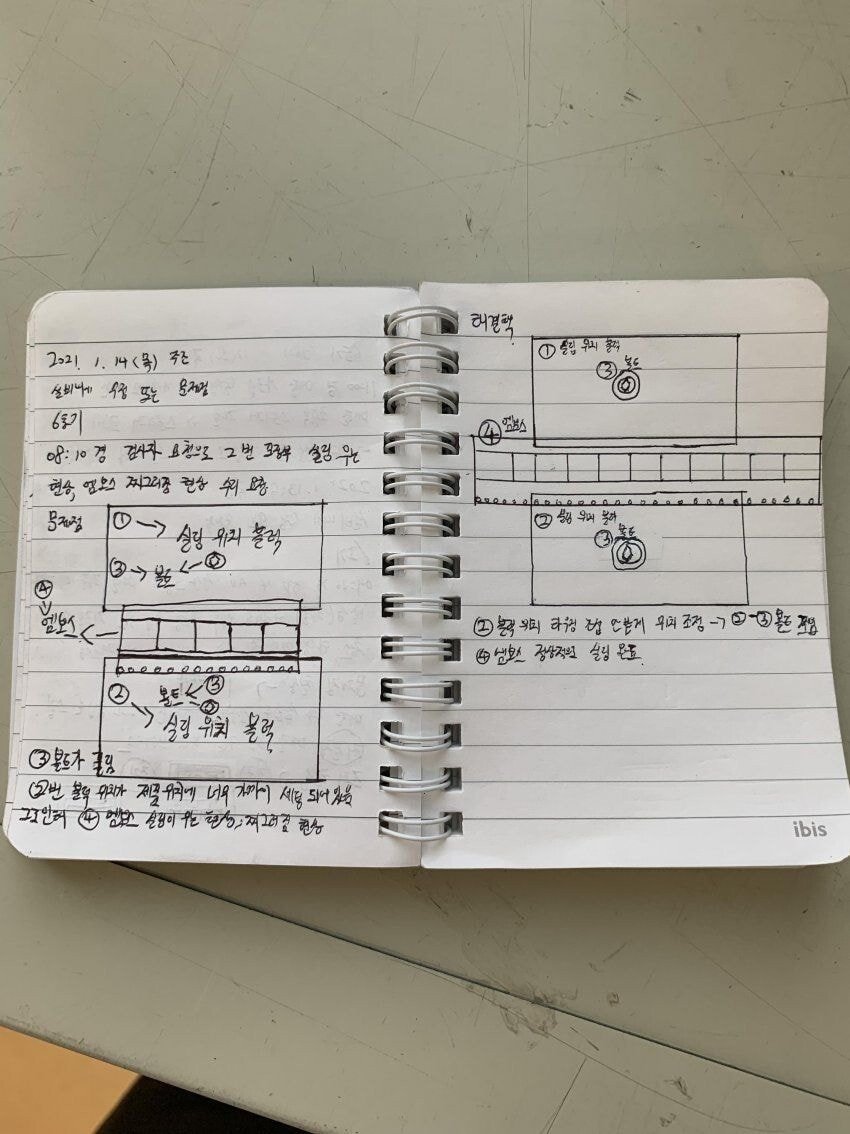 2021. 1. 14 (목) 주간
설비나게 수정 또는 문제점
6호기
08:10 경 검사자 요청으로 2번 포장부 실링 우는
현상, 엠보스 찌그러짐 현상 수리 요함
문제점
① → 실링 위치 블럭
③ → 볼트
④
엠보스
② 볼트 ③
→ 실링 위치 블럭
③ 볼트가 풀림
②번 블럭 위치가 제품위치에 너무 가까이 세팅 되어 있음
그로인해 ④ 엠보스 실링이 우는 현상, 찌그러짐 현상
해결책
① 실링 위치 블럭
③ 볼트
④ 엠보스
② 실링 위치 블럭
③ 볼트
② 블럭 위치 위치 조정 → ② - ③ 볼트
④ 엠보스 정상적인 실링 완료
ibis